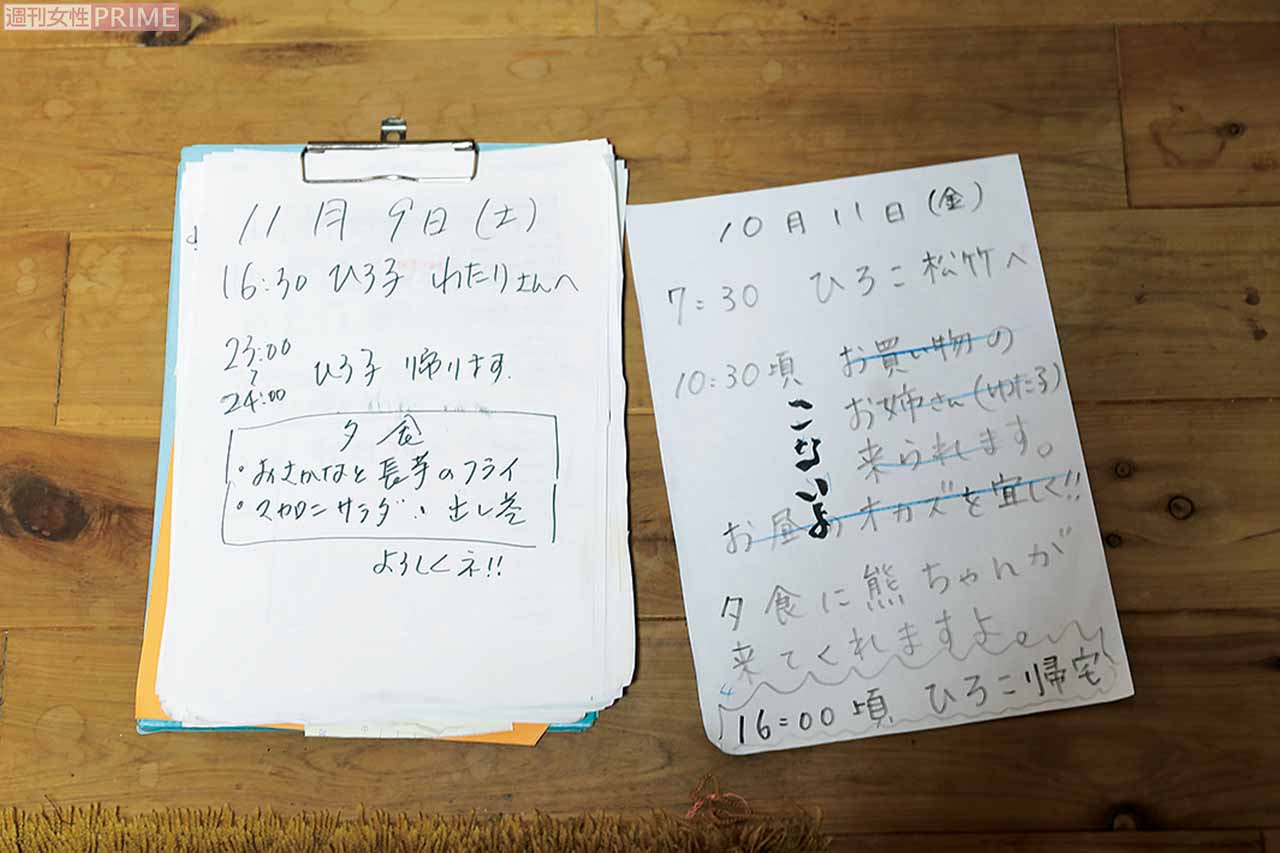 週刊女性PRIME
11月9日(土)
16:30 ひろ子 わたりさんへ
23:00
〜
24:00
ひろ子 帰ります.
夕食
・おさかなと長芋のフライ
・マカロニサラダ、出し巻
よろしくネ!!
10月11日(金)
7:30 ひろこ松竹へ
10:30頃 お買い物の
お姉さん(わたる)
来られます。
お昼のオカズを宜しく!!
こないよ
夕食に熊ちゃんが
来てくれますよ。
16:00頃 ひろこ帰宅